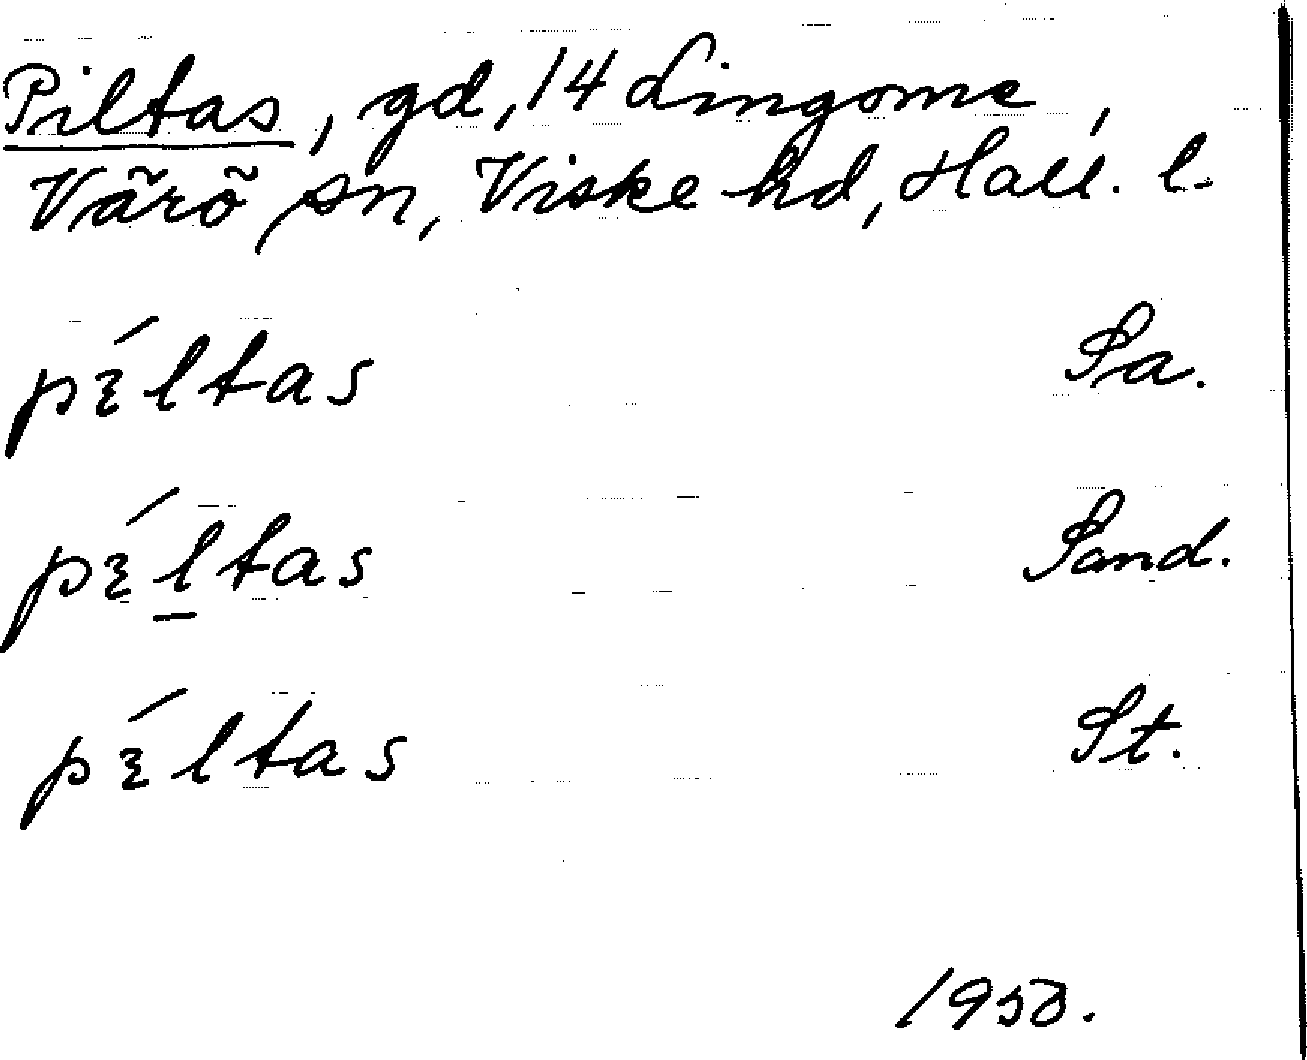 Piltas, gd, 14 Lingome,
Värö sn, Viske hd, Hall. l.
pɛ́ltas Sa.
pɛ́l̲tas Sand.
pɛ́ltas St.
1950.